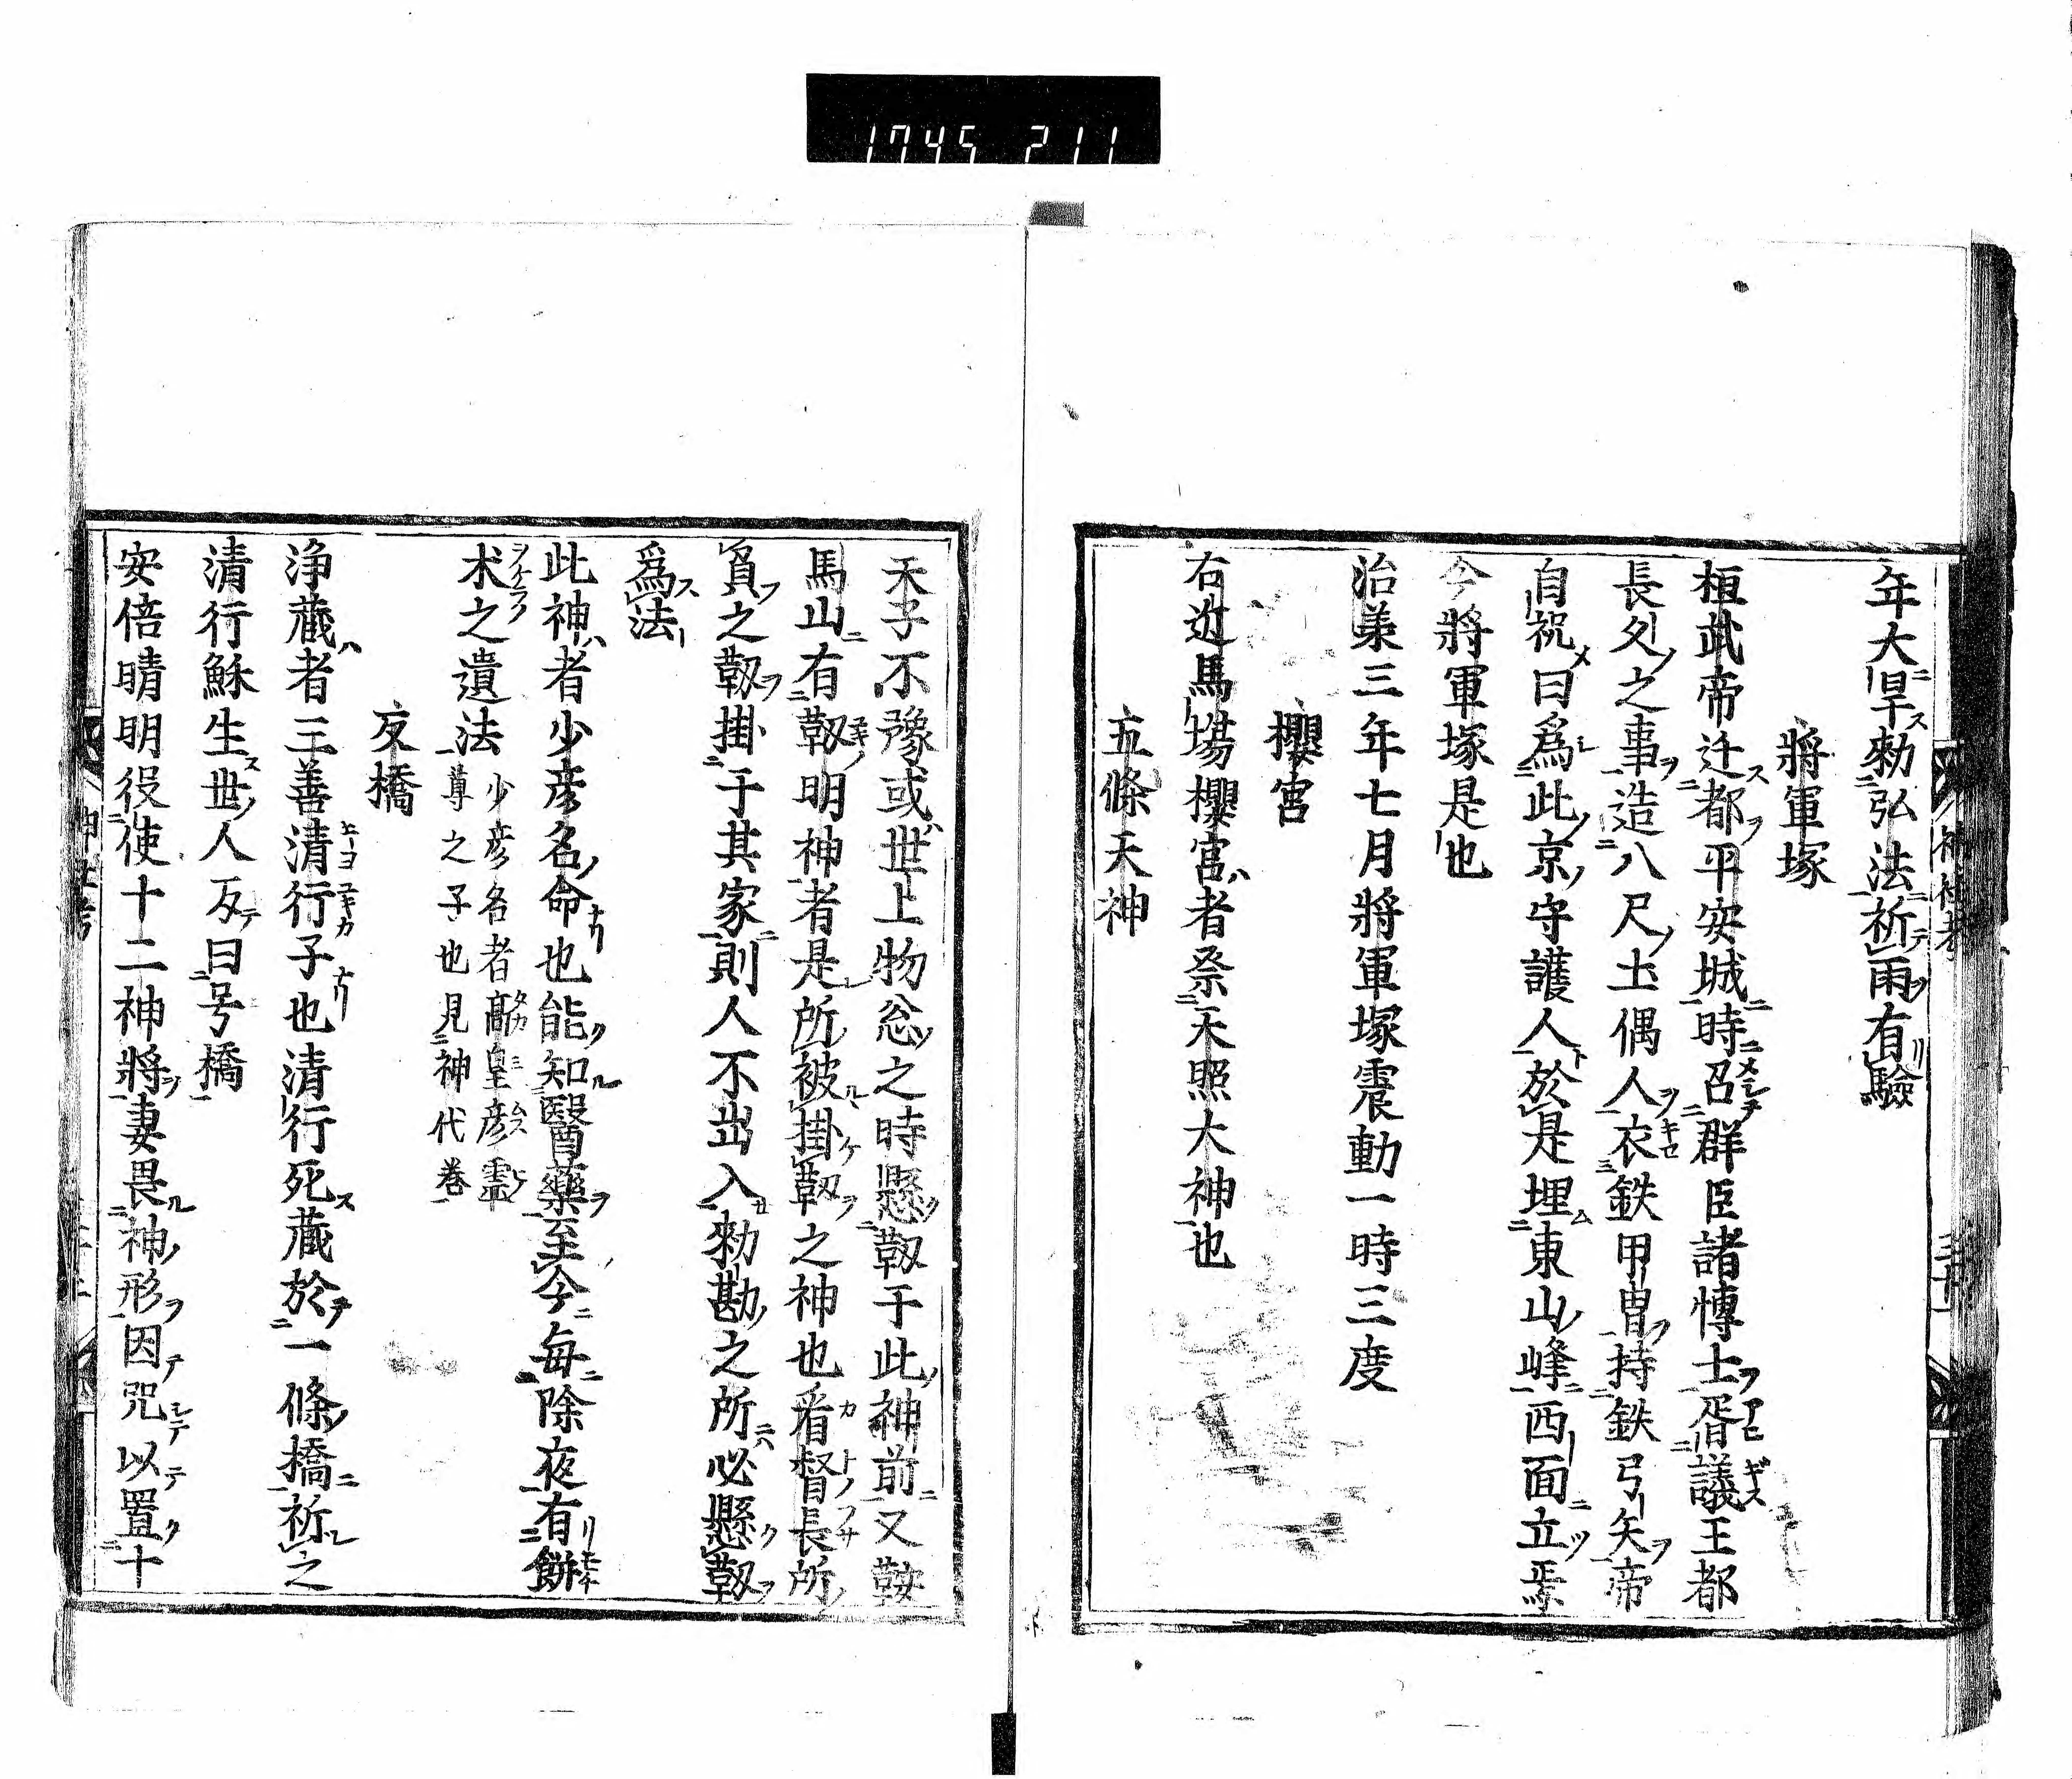 1745 211
年大旱勅弘法祈雨有驗
將軍塚
桓武帝迁都平安城時召群臣諸愽士胥議王都
長久之事造八尺土偶人衣鉄甲冑持鉄弓矢帝
自祝曰爲此京守護人於是埋東山峰西面立焉
今將軍塚是也
治第三年七月將軍塚震動一時三度
櫻宮
右近馬塲櫻宮者祭天照大神也
五條天神
天子不豫或世上物忩之時懸靱于此神前又鞍
馬山有靱明神者是所被掛靱之神也看督長所
負之靱掛于其家則人不出入勅勘之所必懸靱
爲法
此神者少彦名命也能知醫藥至今毎除夜有餅
朮之遺法
少彦名者高皇彦靈
尊之子也見神代巻
反橋
浄蔵者三善清行子也清行死蔵於一條橋祈之
清行穌生世人反曰号橋
安倍晴明役使十二神將妻畏神形因咒以置十